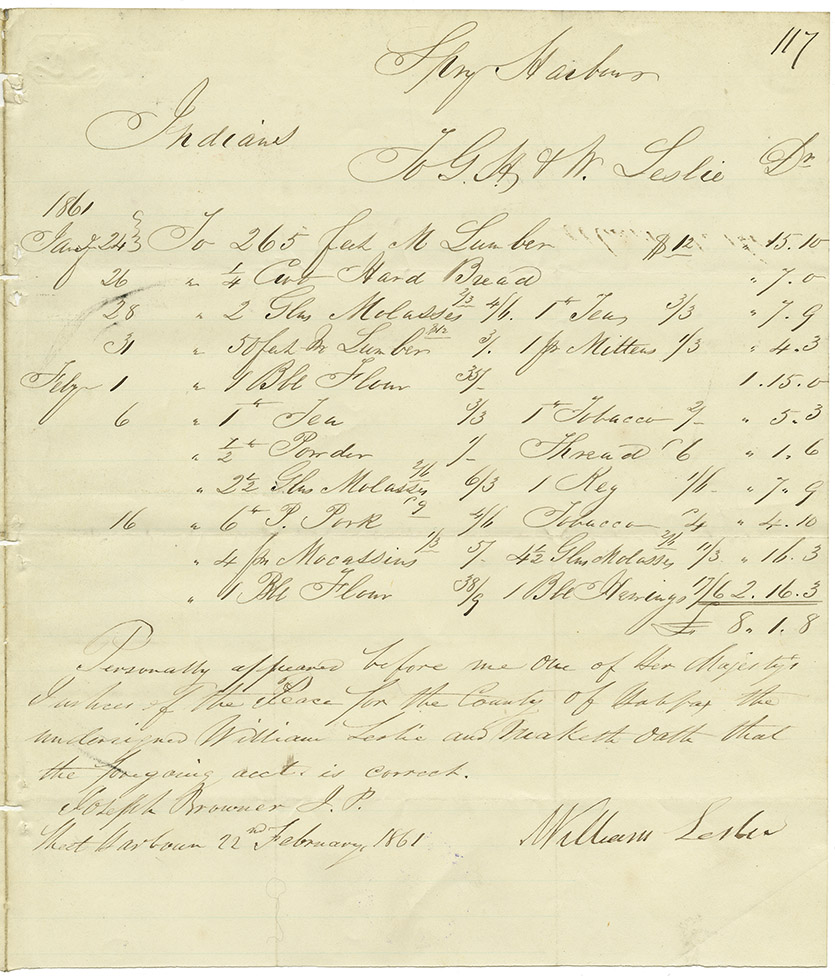 117
Spry Harbour
Indians
To G. H. & W. Leslie Dr
1861
Jany 24 To 265 feet M Lumber $12 " 15.10
26 " 1/4 Cwt Hard Bread " 7.0
28 " 2 Glns Molasses 2/3 4/6. 1 " Tea 3/3 " 7.9
31 " 50 feet M Lumber $12 3/. 1 pr Mittens 1/3 " 4.3
Feby 1 " 1 Bbl Flour 35/- 1.15.0
6 " 1 " Tea 3/3 1 " Tobacco 2/- " 5.3
" 1/2 " Powder 1/- Thread 6 " 1.6
" 2 1/2 Glns Molasses 2/6 6/3 1 Keg 1/6 " 7.9
16 " 6 " P. Pork 9 4/6 Tobacco 4 " 4.10
" 4 pr Mocassins 1/3 5/- 4 1/2 Glns Molasses 2/6 11/3 " 16.3
" 1 Bbl Flour 38/9 1 Bbl Herrings 17/6 2.16.3
£ 8 " 1.8
Personally appeared before me One of Her Majesty's
Justices of the Peace for the County of Halifax the
undersigned William Leslie and Maketh Oath that
the foregoing acct. is correct.
Joseph Browner J. P.
Sheet Harbour 22nd February 1861
William Leslie